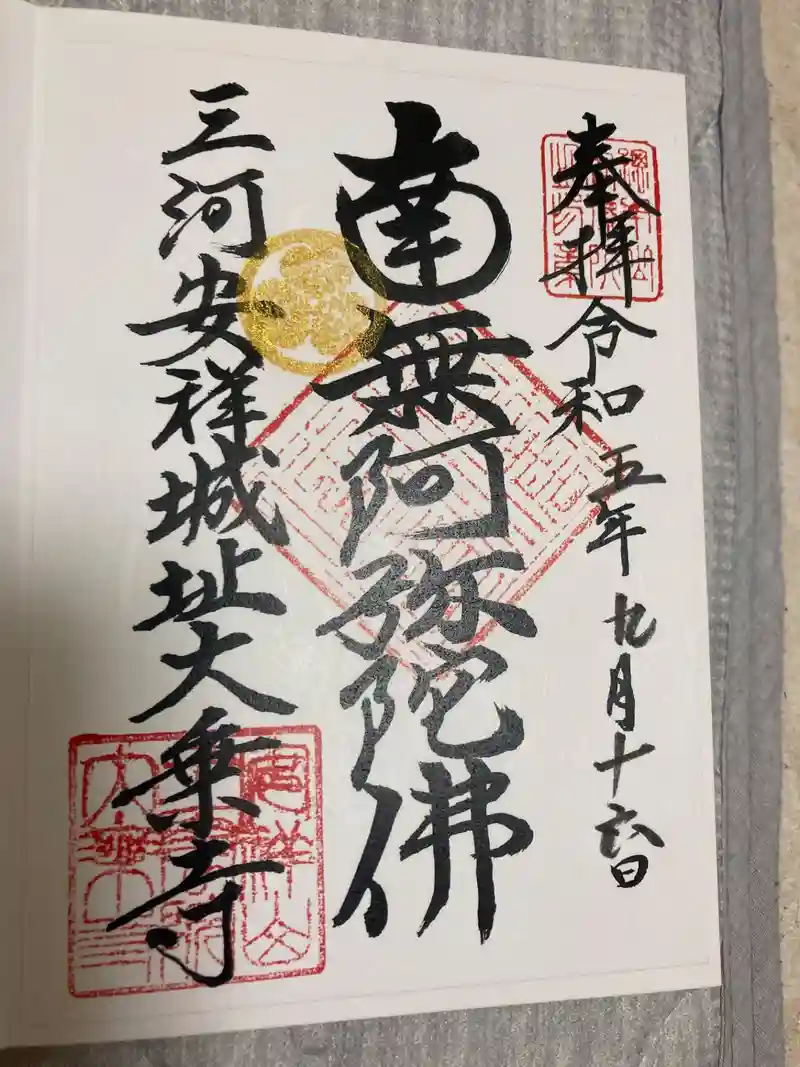 奉拝 令和五年 九月十六日
南無阿弥陀佛
三河安祥城址大乗寺